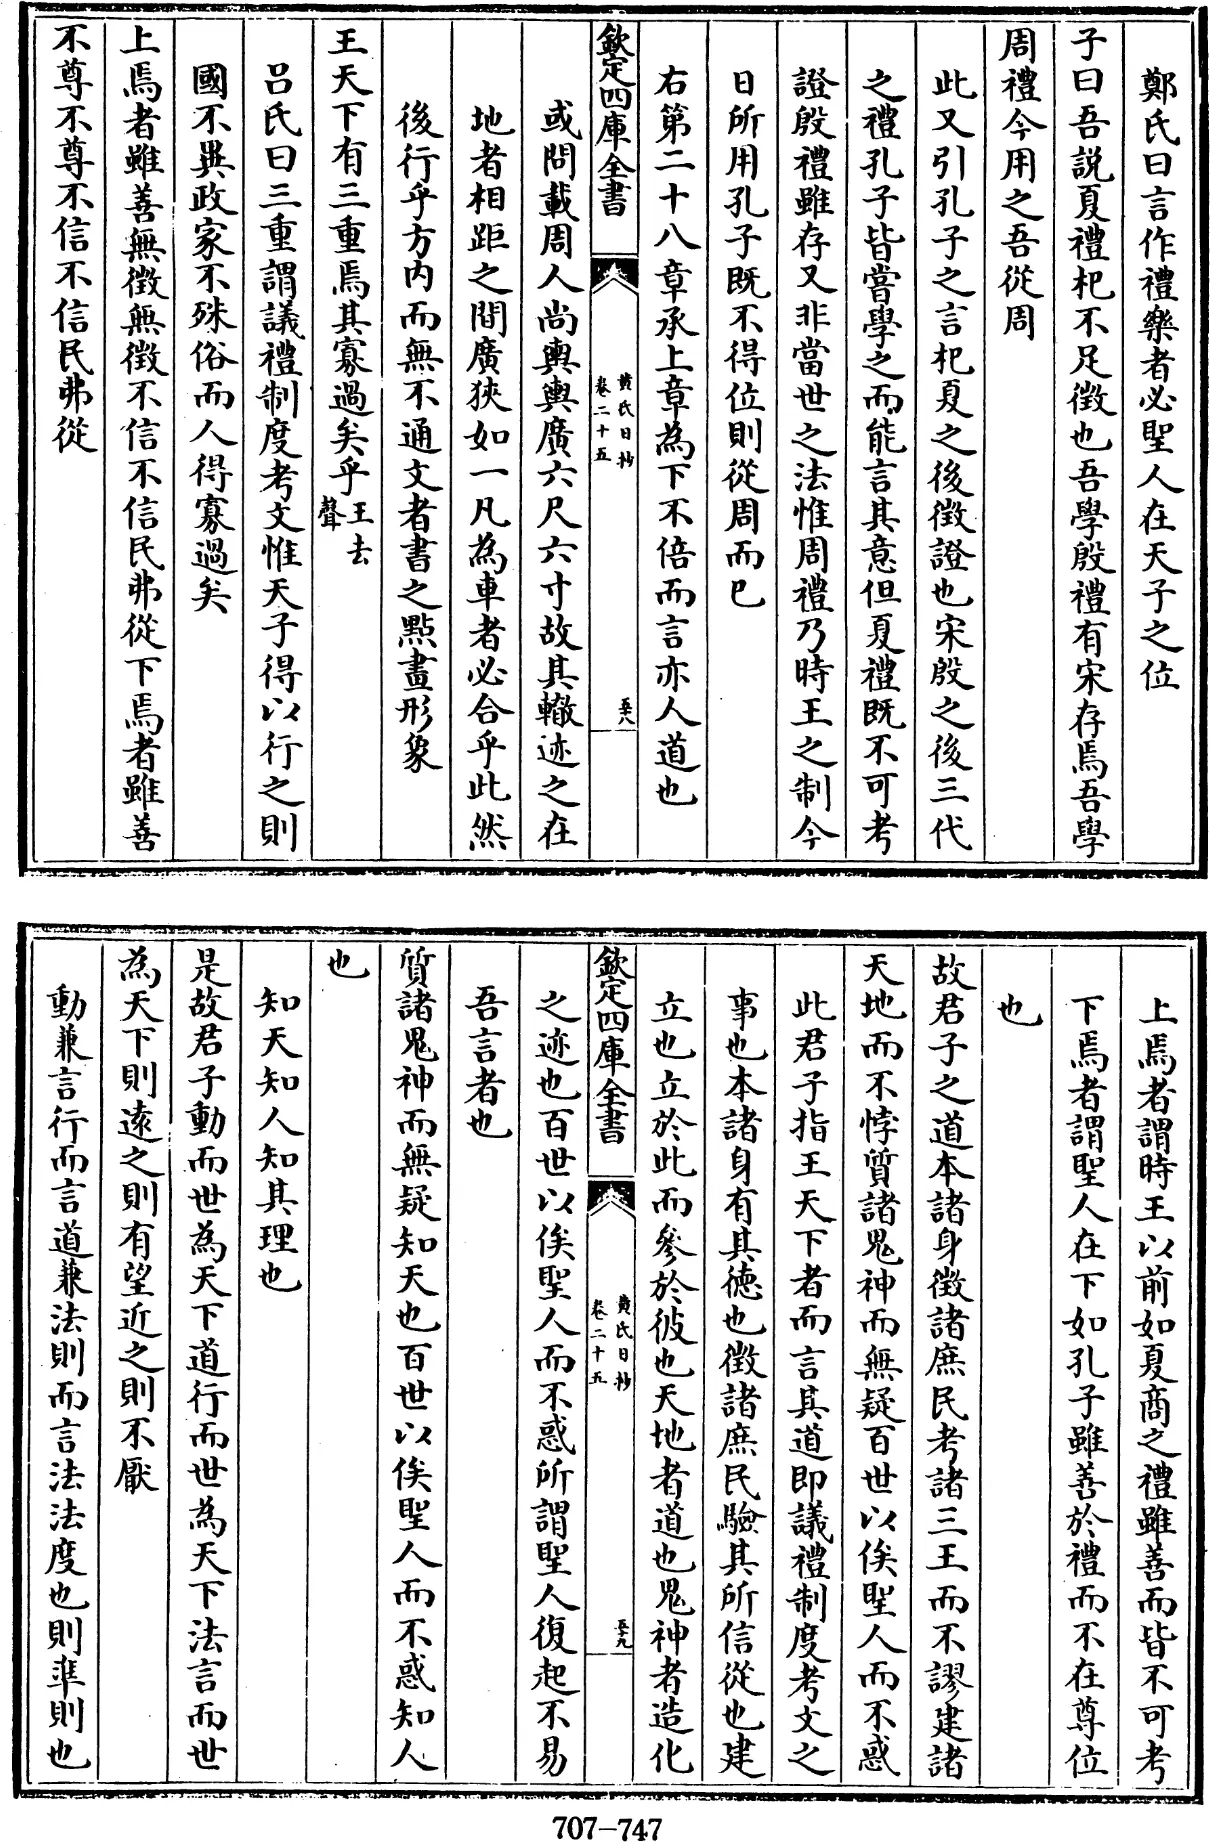 鄭氏曰言作禮樂者必聖人在天子之位
子曰吾説夏禮杞不足徵也吾學殷禮有宋存焉吾學
周禮今用之吾從周
此又引孔子之言杞夏之後徵證也宋殷之後三代
之禮孔子皆嘗學之而能言其意但夏禮既不可考
證殷禮雖存又非當世之法惟周禮乃時王之制今
日所用孔子既不得位則從周而已
右第二十八章承上章為下不倍而言亦人道也
欽定四庫全書
黄氏日抄
卷二十五
五十八
或問載周人尚輿輿廣六尺六寸故其轍迹之在
地者相距之間廣狹如一凡為車者必合乎此然
後行乎方内而無不通文者書之點畫形象
王天下有三重焉其寡過矣乎王去聲
吕氏曰三重謂議禮制度考文惟天子得以行之則
國不異政家不殊俗而人得寡過矣
上焉者雖善無徵無徵不信不信民弗從下焉者雖善
不尊不尊不信不信民弗從
上焉者謂時王以前如夏商之禮雖善而皆不可考
下焉者謂聖人在下如孔子雖善於禮而不在尊位
也
故君子之道本諸身徵諸庶民考諸三王而不謬建諸
天地而不悖質諸鬼神而無疑百世以俟聖人而不惑
此君子指王天下者而言其道即議禮制度考文之
事也本諸身有其徳也徵諸庶民驗其所信從也建
立也立於此而參於彼也天地者道也鬼神者造化
欽定四庫全書
黄氏日抄
卷二十五
五十九
之迹也百世以俟聖人而不惑所謂聖人復起不易
吾言者也
質諸鬼神而無疑知天也百世以俟聖人而不惑知人
也
知天知人知其理也
是故君子動而世為天下道行而世為天下法言而世
為天下則逺之則有望近之則不厭
動兼言行而言道兼法則而言法法度也則凖則也
707-747